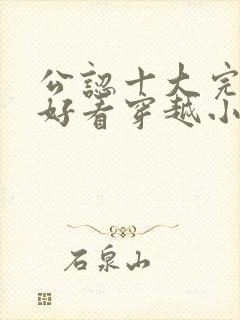 公認十大完
好看穿越小
石泉山